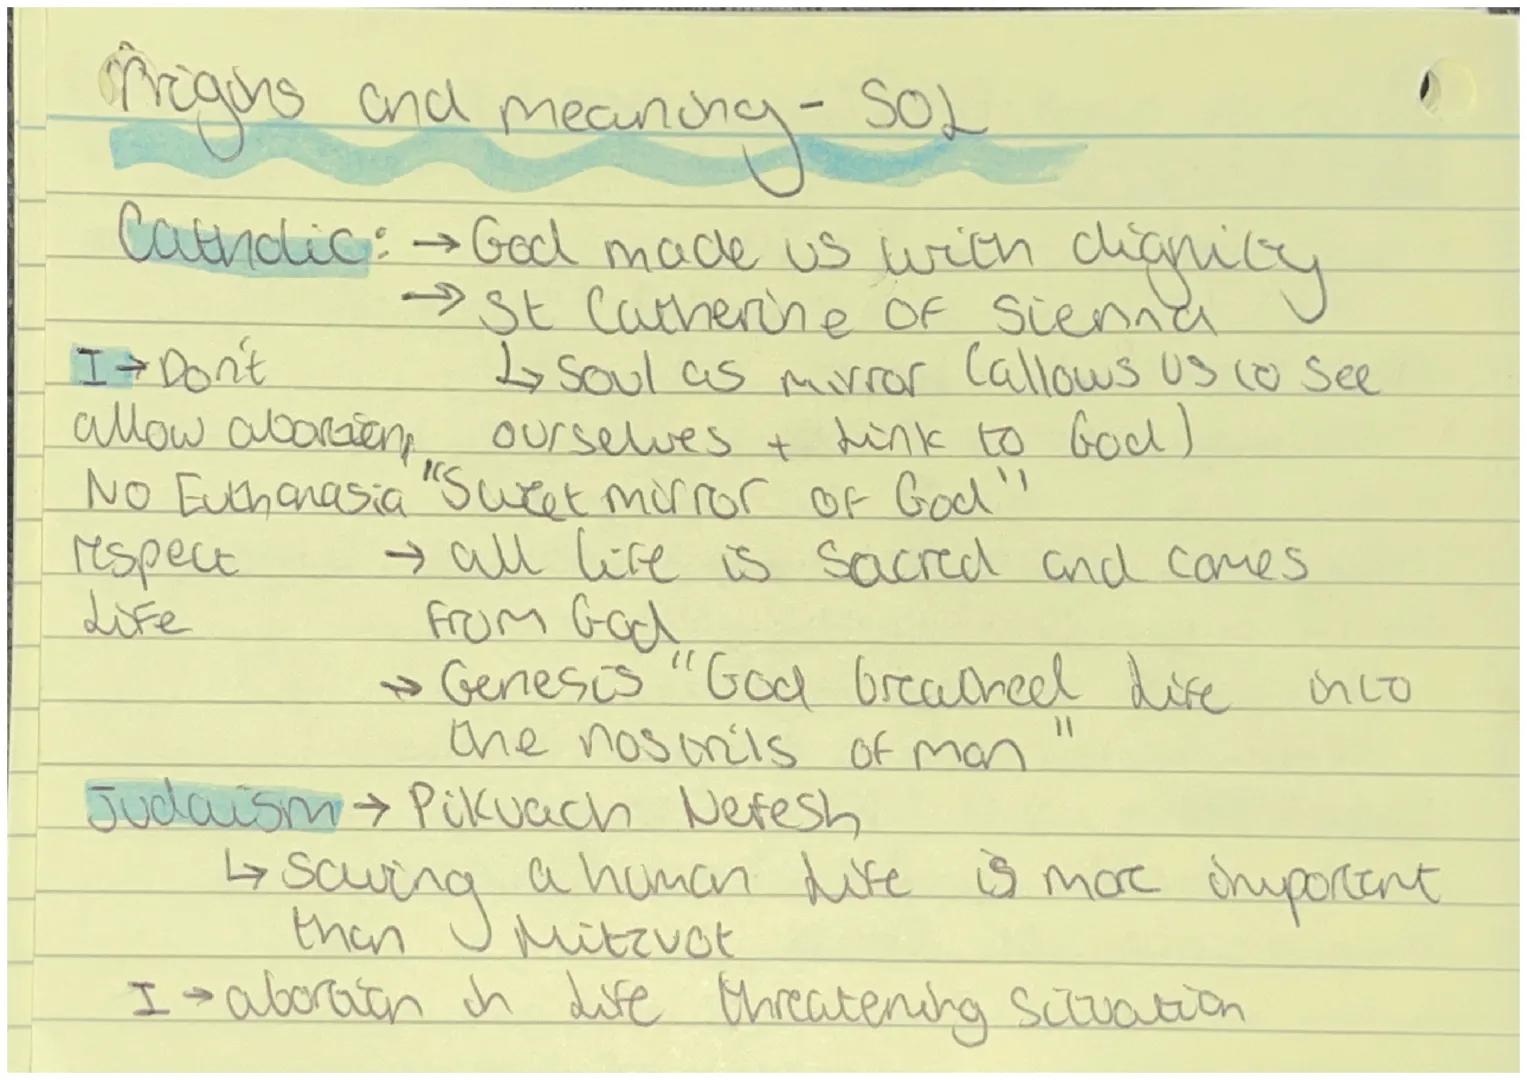 Origins and meaning - SOL
Catholic: → God made us with dignity
→ St Catherine of Sienna
I → Don't ↳ Soul as mirror (allows us to see
allow abortion, ourselves + Link to God)
No Euthanasia "Sweet mirror of God"
respect → all life is sacred and comes
Life from God
→ Genesis "God breathed Life into
the nostrils of man"
Judaism → Pikuach Nefesh
↳ Saving a human Life is more important
than Mitzvot
I → abortion in Life threatening situation